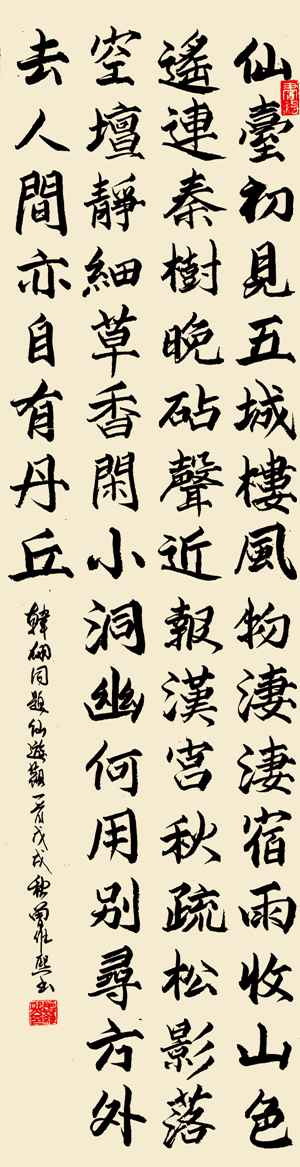 仙臺初見五城樓風物淒淒宿雨收山色
遙連秦樹晚砧聲近報漢宮秋疏松影落
空壇靜細草香閑小洞幽何用別尋方外
去人間亦自有丹丘
韓翃同題仙遊觀一首戊戌秋熙書